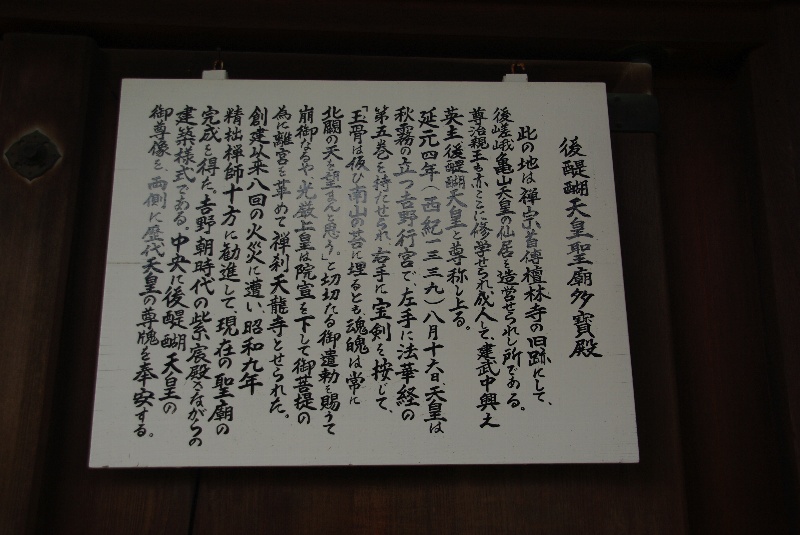 後醍醐天皇聖廟多寳殿
此の地は禅宗首傳檀林寺の旧跡にして、
後嵯峨亀山天皇の仙居を造営せられし所である。
尊治親王も亦こゝに修学せられ成人して、建武中興之
英主後醍醐天皇と尊称し上る。
延元四年（西紀一三三九）八月十六日、天皇は
秋霧の立つ吉野行宮で、左手に法華経の
第五巻を持たせられ、右手に宝剣を按じて、
「玉骨は仮ひ南山の苔に埋るとも、魂魄は常に
北闕の天を望まんと思う。」と切切たる御遺勅を賜うて
崩御なるや、光厳上皇は院宣を下して御菩提の
為に離宮を革めて禅刹天龍寺とせられた。
創建以来八回の火災に遭い、昭和九年
精拙禅師十方に勧進して、現在の聖廟の
完成を得た。吉野朝時代の紫宸殿さながらの
建築様式である。中央に後醍醐天皇の
御尊像を、両側に歴代天皇の尊牌を奉安する。